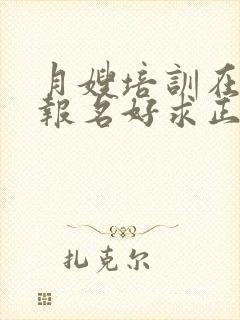 月嫂培訓在
報名好求正
扎克尔